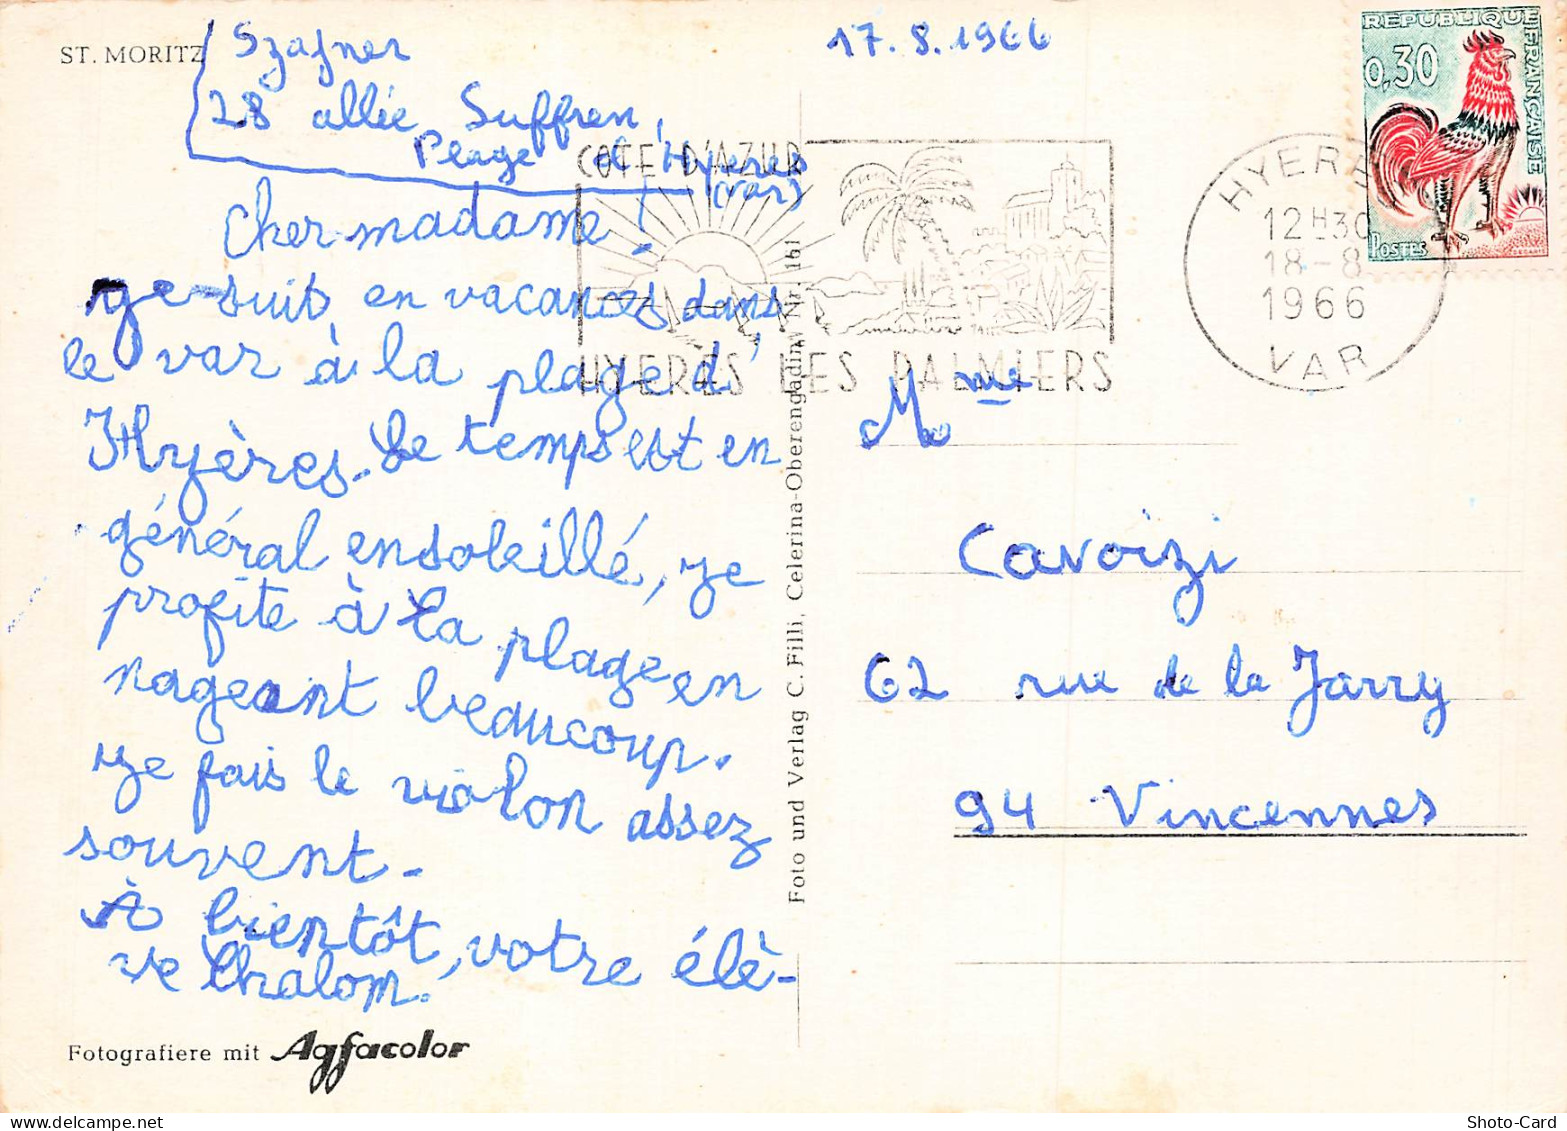 ST. MORITZ
Szafner
28 allée Suffren,
Plage d'Hyeres
(var)
17.8.1966
REPUBLIQUE FRANÇAISE
0,30
POSTES
DECARIS
COTE D'AZUR
HYERES LES PALMIERS
HYERES
12H30
18-8
1966
VAR
Cher madame!
je suis en vacances dans
le var à la plage d'
Hyères. Le temps est en
général ensoleillé, je
profite à la plage en
nageant beaucoup.
je fais le violon assez
souvent.
À bientôt, votre élè-
ve Chalom.
Fotografiere mit Agfacolor
Foto und Verlag C. Filli, Celerina-Oberengadin, Nr. 161
Mme
Cavoizi
62 rue de la Jarry
94 Vincennes
Shoto-Card